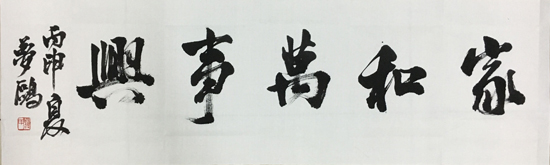 家和萬事興
丙申夏
夢鷗